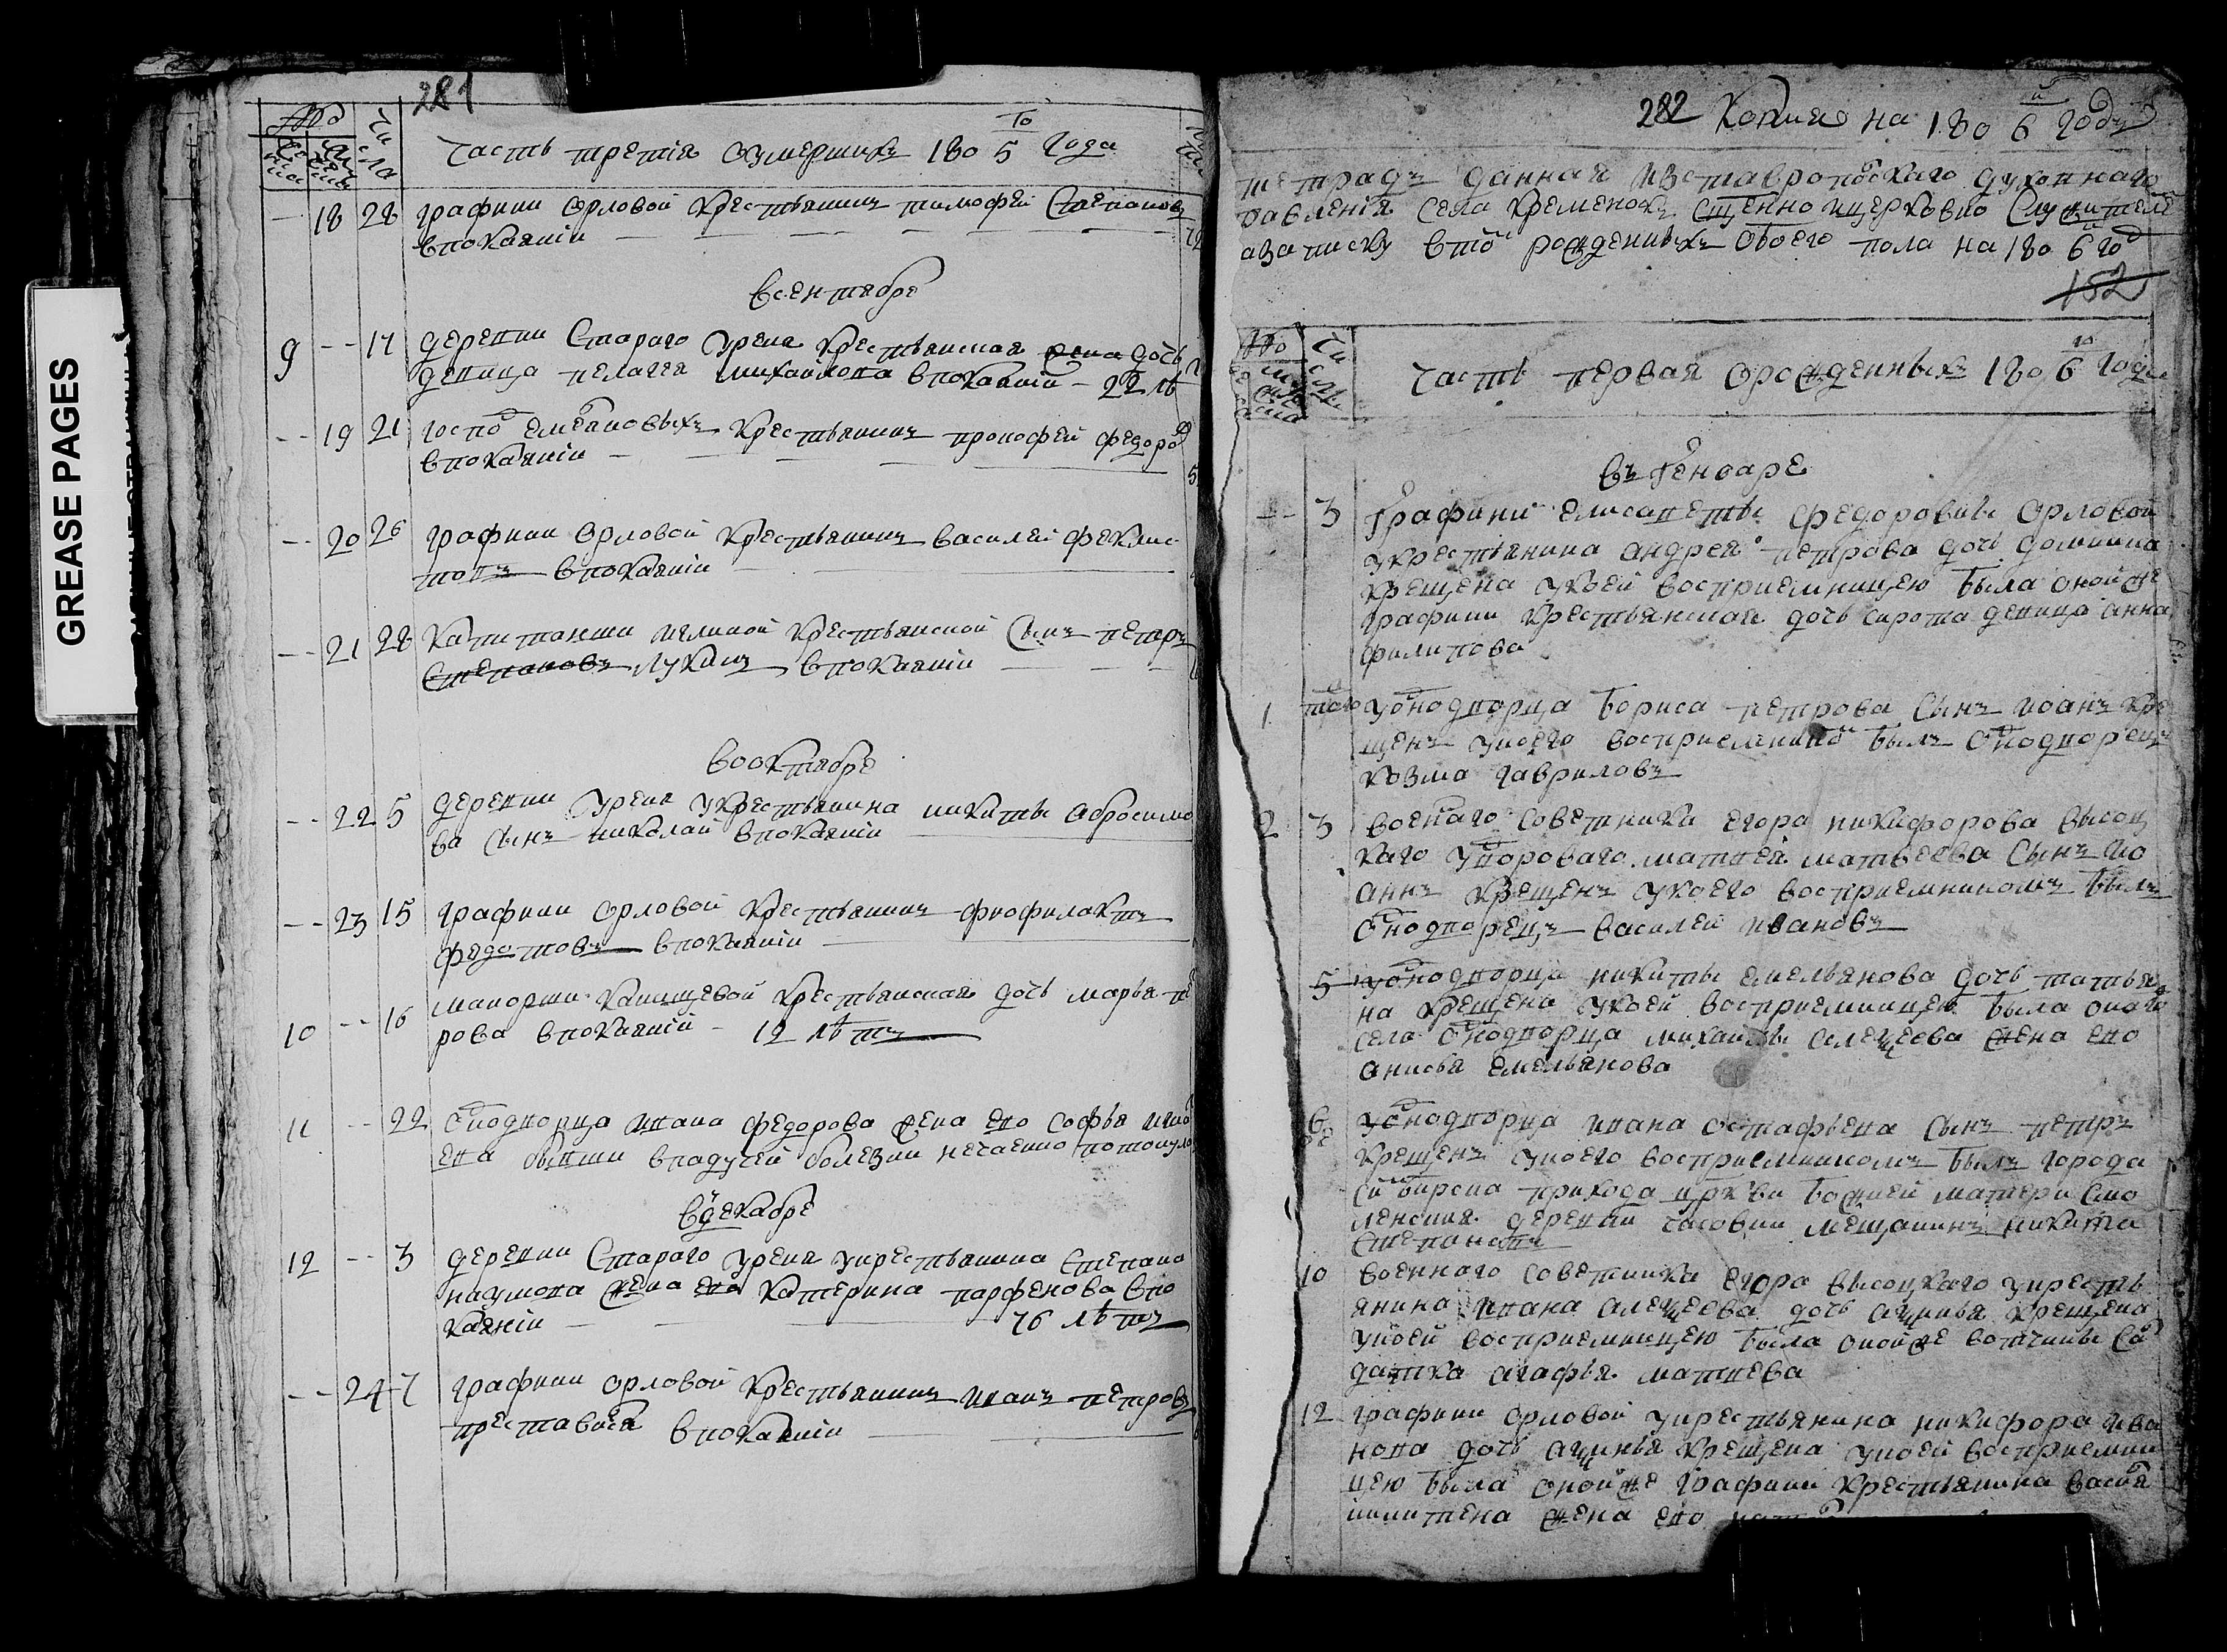 GREASE PAGES
281
Часть третія оумершихъ 1805го Года
18 28 Графини Орловой крестьянинъ тимофей Степановъ
впокаяніи
всентябре
9 -- 17 деревни Стараго Урена крестьянская жена дочь
девица пелагея михаилова впокаяніи - 22 лѣ
-- 19 21 госпо емеановыхъ крестьянинъ прокофей федоро
впокаяніи
-- 20 26 графини Орловой крестьянинъ василей феклис
товъ впокаяніи
-- 21 28 капитанши крестьянской Сынъ петръ
Степановъ лукинъ впокаяніи
вооктябре
-- 22 5 деревни Урена укрестьянина никиты абросимо
ва Сынъ николай впокаяніи
-- 23 15 графини Орловой крестьянинъ феофилактъ
федотовъ впокаяніи
10 -- 16 маиорши крестьянская дочь марья пе
рова впокаяніи - 12 лѣтъ
11 -- 22 однодворца ивана федорова жена ево софья
ева бывши впадучей болезни нечаенно потонула
вдекабре
12 -- 3 деревни Стараго Урена укрестьянина Степана
наумова жена ево катерина парфенова впо
каяніи 76 лѣтъ
-- 24 7 графини орловой крестьянинъ иванъ петровъ
преставися впокаяніи
282 Копия на 1806й годъ
тетрадь данная изставропоского духовнаго
равленія села кременокъ сщенно ицерковно Служителе
азаписку втой рожденныхъ обоего пола на 1806й год
152
Часть первая орожденныхъ 1806го Года
въ Генваре
-- 3 Графини елисаветы федоровны Орловой
укрестьянина андрея петрова дочь домника
крещена укоей восприемницею была оной же
графини крестьянская дочь сирота девица анна
филипова
1 того уоднодворца бориса петрова Сынъ иоанъ кре
щенъ укоего восприемнико былъ однодворецъ
козма гавриловъ
2 3 военнаго советника егора никифорова высоц
каго матвея матвеева Сынъ ио
аннъ крещенъ укоего восприемникомъ былъ
однодворецъ василей ивановъ
5 уоднодворца никиты емельянова дочь татья
на крещена укоей восприемницею была онаго
села однодворца михаилы алещеева жена ево
анисья емельянова
6 уоднодворца ивана остафьева Сынъ петръ
крещенъ укоего восприемникомъ былъ города
синбирска прихода цркви божией матери Смо
ленския деревни часовни мещанинъ никита
Степановъ
10 военнаго советника егора высоцкаго укресть
янина ивана алещеева дочь аксинья крещена
укоей восприемницею была онойже вотчины са
датка агафья матвева
12 графини орловой укрестьянина никифора ива
нова дочь аксинья крещена укоей восприемни
цею была онойже графини крестьянина васил
никитена жена ево